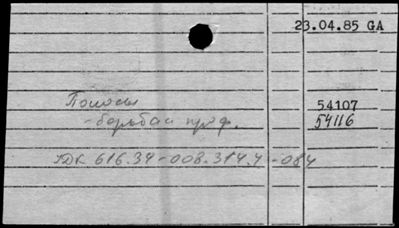 23.04.85 GA
Поносы 54107
-борьба и проф. 54116
УДК 616.34-008.314.4-084